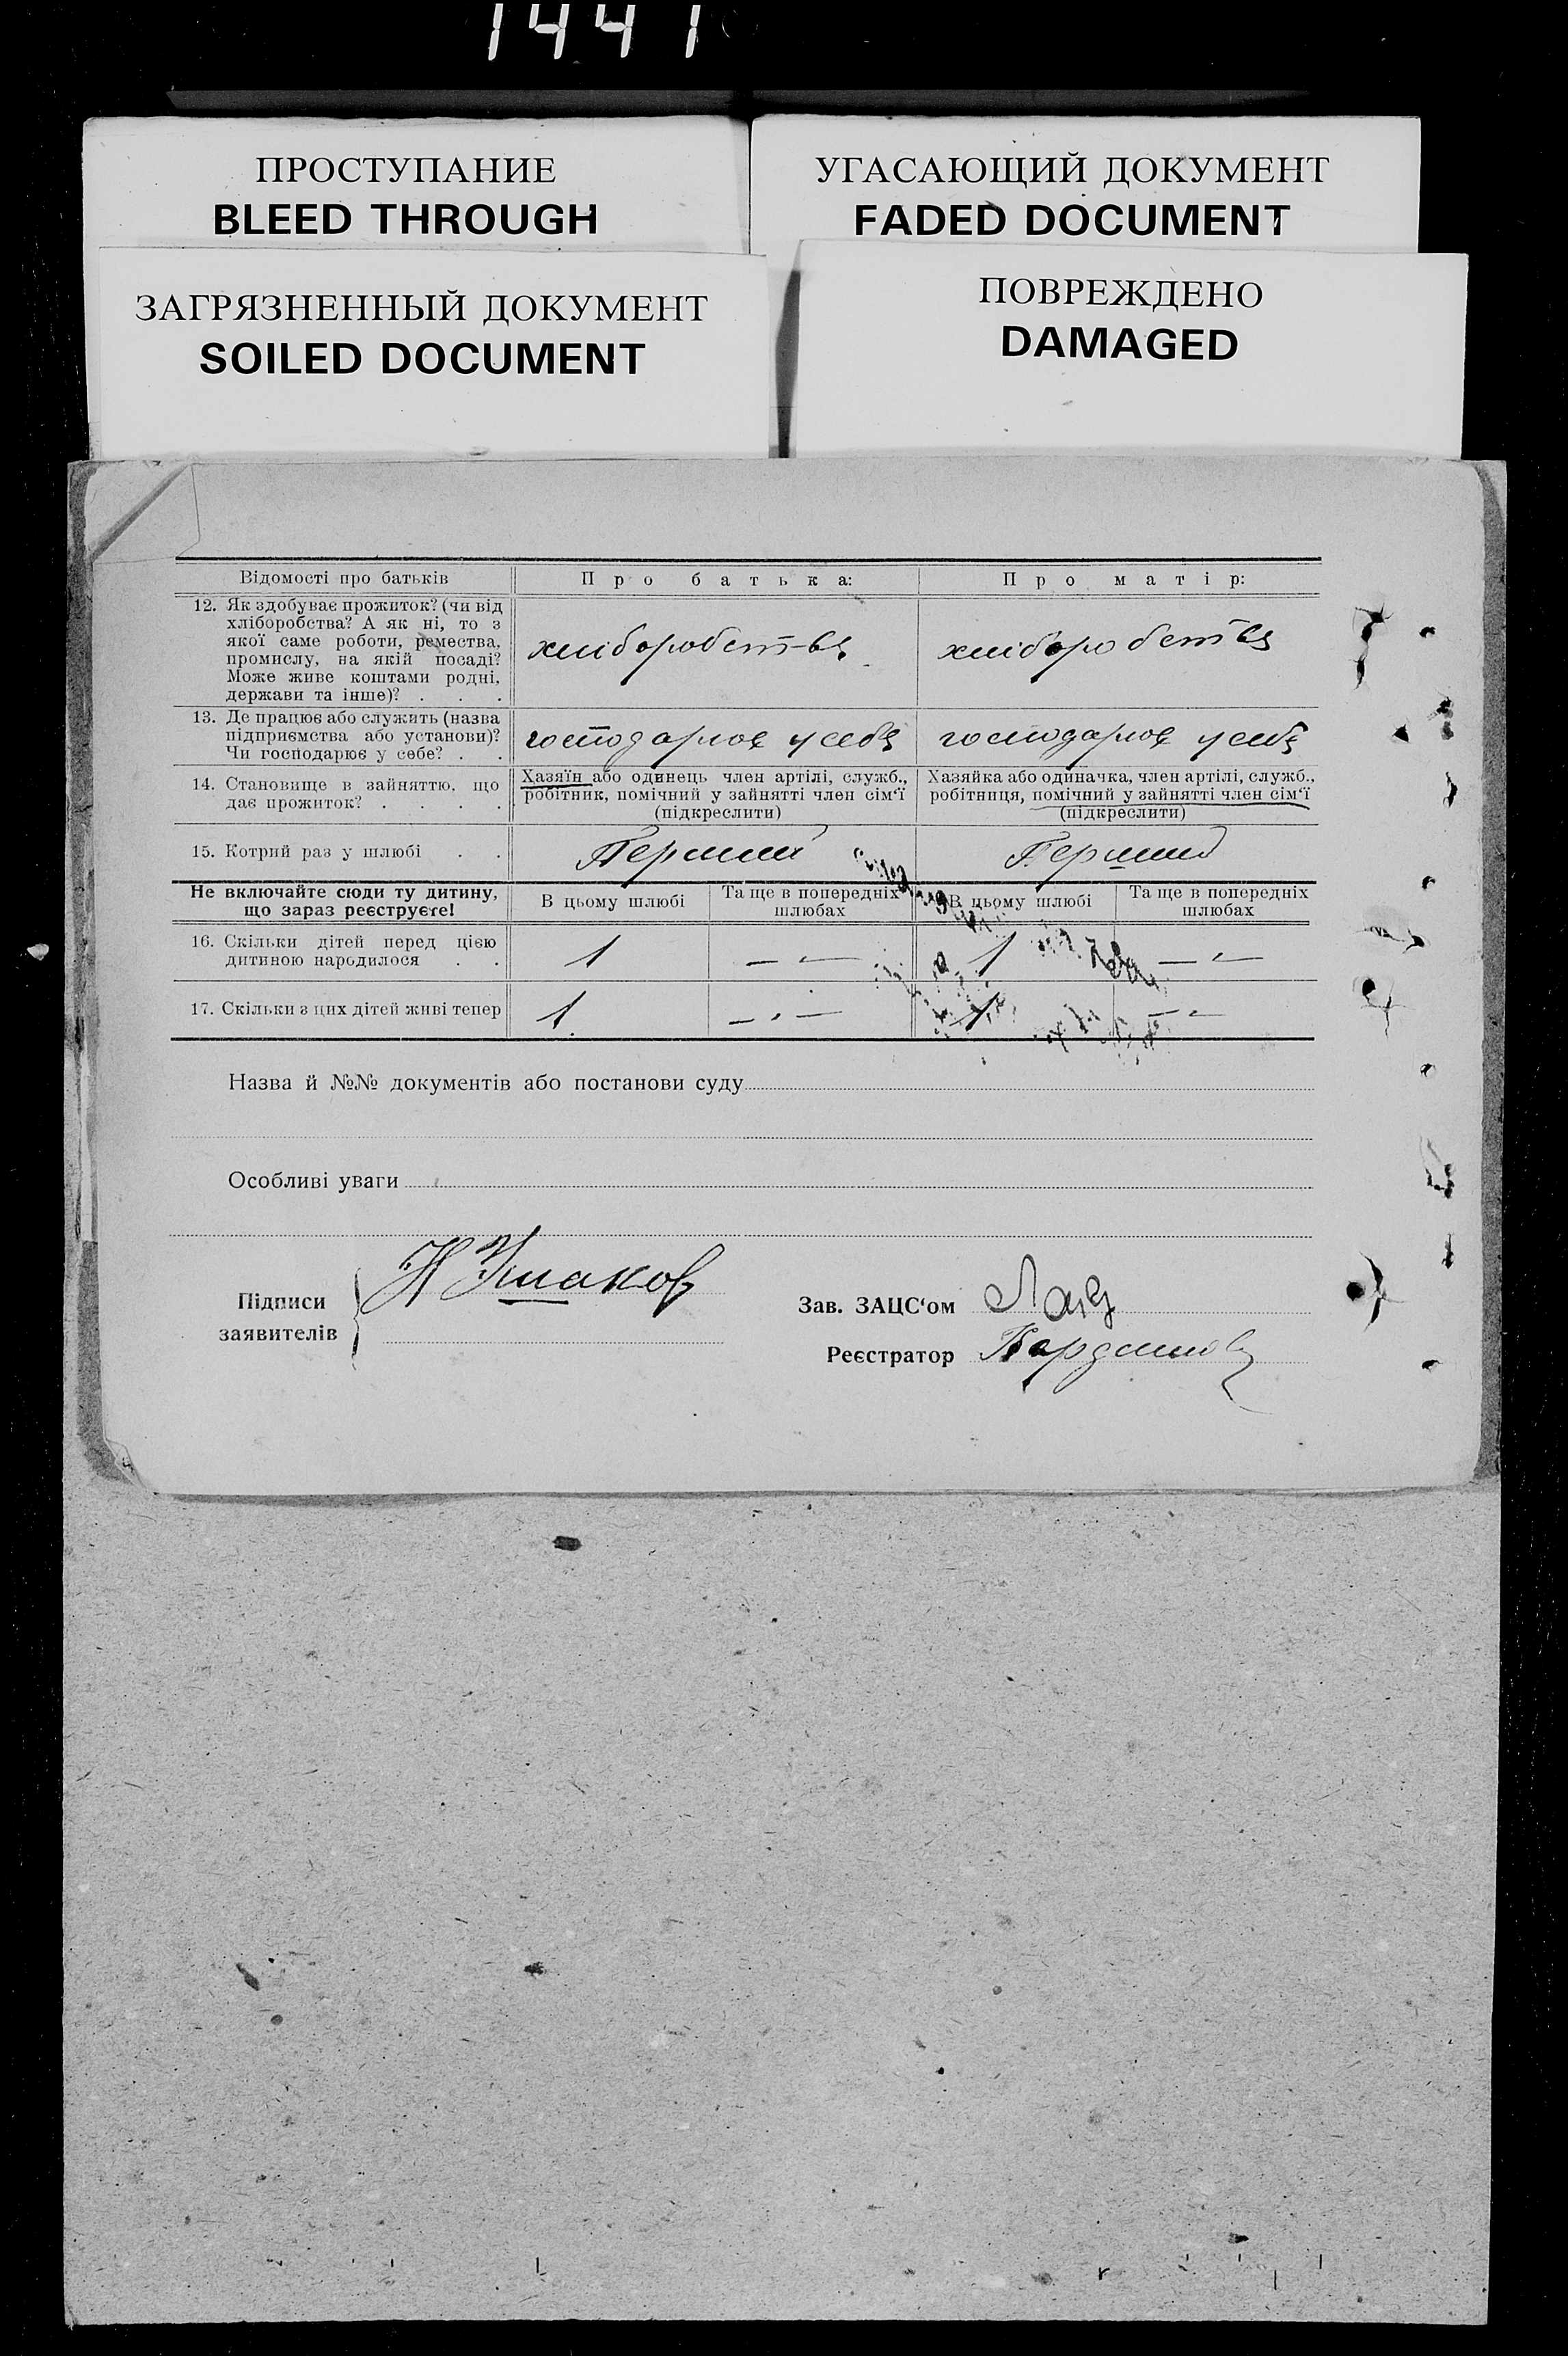 1441
ПРОСТУПАНИЕ
BLEED THROUGH
УГАСАЮЩИЙ ДОКУМЕНТ
FADED DOCUMENT
ЗАГРЯЗНЕННЫЙ ДОКУМЕНТ
SOILED DOCUMENT
ПОВРЕЖДЕНО
DAMAGED
Відомості про батьків
Про батька:
Про матір:
12. Як здобуває прожиток? (чи від
хліборобства? А як ні, то з
якої саме роботи, ремества,
промислу, на якій посаді?
Може живе коштами родні,
держави та інше)? . . .
хліборобства
хліборобства
13. Де працює або служить (назва
підприємства або установи)?
Чи господарює у себе? . .
господарює у себе
господарює у себе
14. Становище в зайняттю, що
дає прожиток? . . . .
Хазяїн або одинець член артілі, служб.,
робітник, помічний у зайнятті член сім'ї
(підкреслити)
Хазяйка або одиначка, член артілі, служб.,
робітниця, помічний у зайнятті член сім'ї
(підкреслити)
15. Котрий раз у шлюбі . .
Перший
Перший
Не включайте сюди ту дитину,
що зараз реєструєте!
В цьому шлюбі
Та ще в попередніх
шлюбах
В цьому шлюбі
Та ще в попередніх
шлюбах
16. Скільки дітей перед цією
дитиною народилося . .
1
— „ —
1
— „ —
17. Скільки з цих дітей живі тепер
1.
— „ —
1
— „ —
Назва й №№ документів або постанови суду
Особливі уваги
Підписи
заявителів
Н Ушаков
Зав. ЗАЦС'ом
Реєстратор